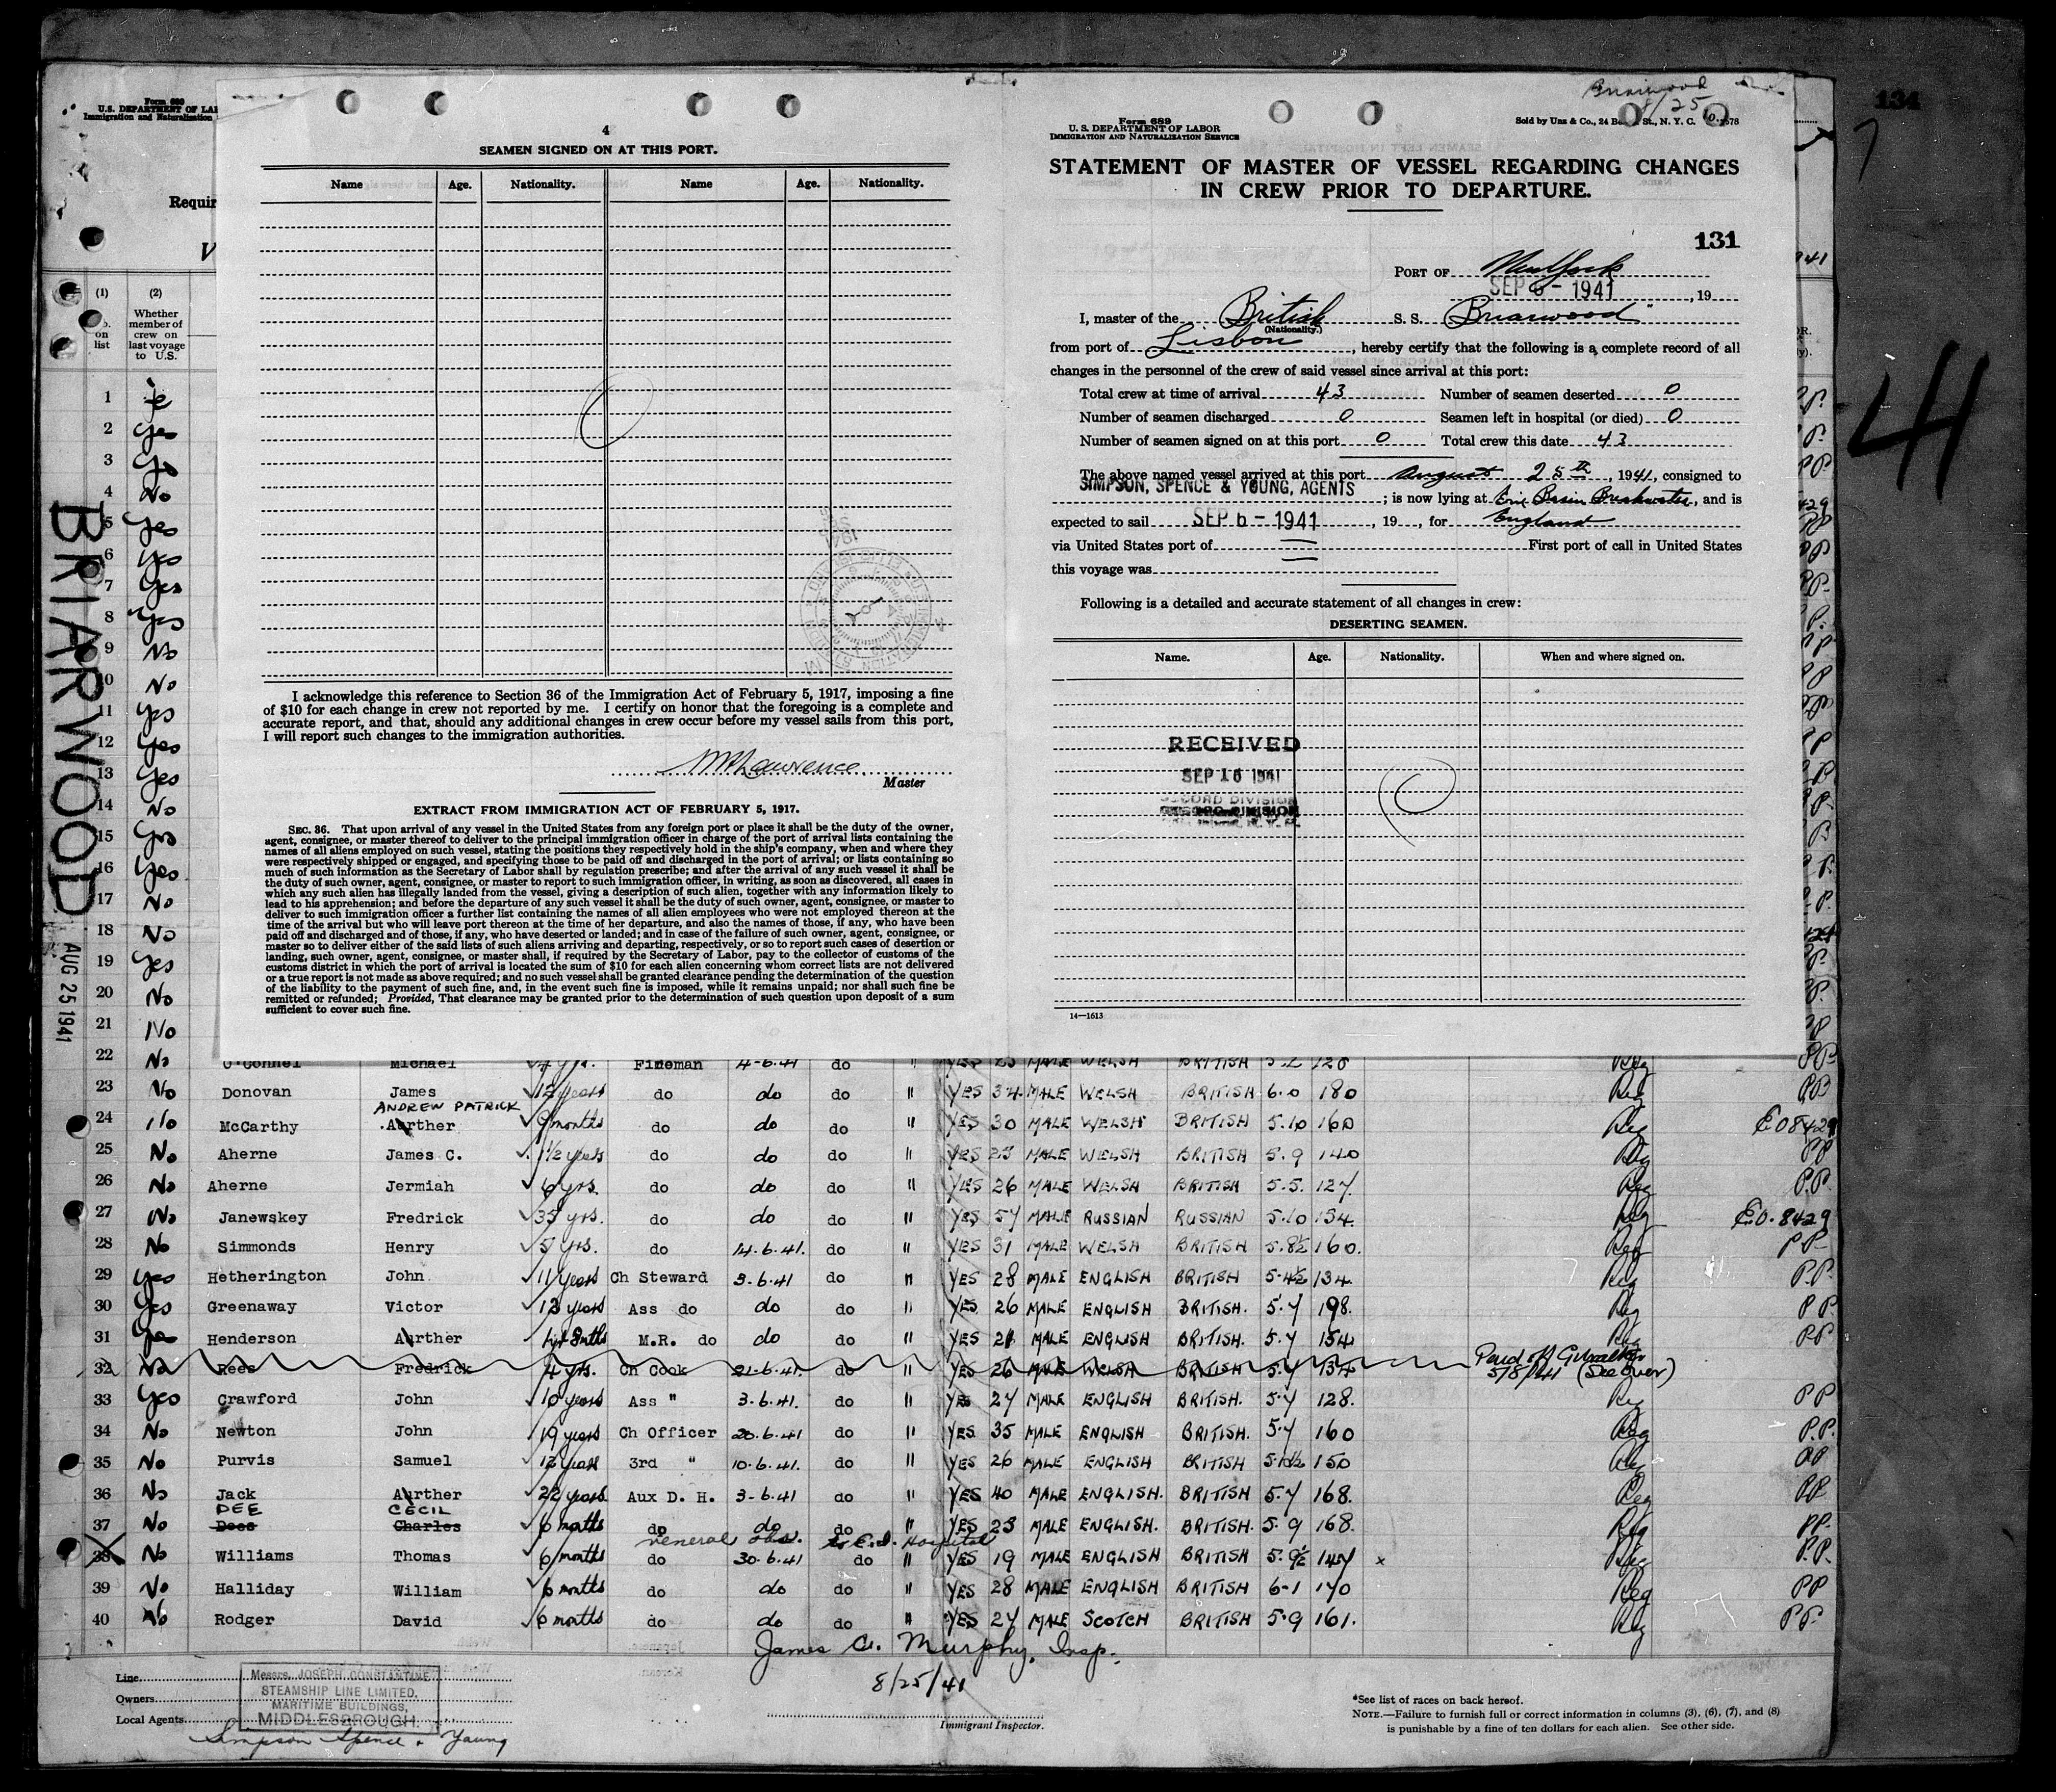 Form 680
U.S. DEPARTMENT OF LA
Immigration and Naturalization
Requir
V
(1) (2)
on list
Whether member of crew on last voyage to U.S.
BRIARWOOD
AUG 25 1941
1
2 Yes
3 Yes
4 No
5 Yes
6 Yes
7 Yes
8 Yes
9 No
10 No
11 Yes
12 Yes
13 Yes
14 No
15 Yes
16 Yes
17 No
18 No
19 Yes
20 No
21 No
4
SEAMEN SIGNED ON AT THIS PORT.
Name Age. Nationality. Name Age. Nationality.
I acknowledge this reference to Section 36 of the Immigration Act of February 5, 1917, imposing a fine
of $10 for each change in crew not reported by me. I certify on honor that the foregoing is a complete and
accurate report, and that, should any additional changes in crew occur before my vessel sails from this port,
I will report such changes to the immigration authorities.
Lawrence
Master
EXTRACT FROM IMMIGRATION ACT OF FEBRUARY 5, 1917.
SEC. 36. That upon arrival of any vessel in the United States from any foreign port or place it shall be the duty of the owner,
agent, consignee, or master thereof to deliver to the principal immigration officer in charge of the port of arrival lists containing the
names of all aliens employed on such vessel, stating the positions they respectively hold in the ship's company, when and where they
were respectively shipped or engaged, and specifying those to be paid off and discharged in the port of arrival; or lists containing so
much of such information as the Secretary of Labor shall by regulation prescribe; and after the arrival of any such vessel it shall be
the duty of such owner, agent, consignee, or master to report to such immigration officer, in writing, as soon as discovered, all cases in
which any such alien has illegally landed from the vessel, giving a description of such alien, together with any information likely to
lead to his apprehension; and before the departure of any such vessel it shall be the duty of such owner, agent, consignee, or master to
deliver to such immigration officer a further list containing the names of all alien employees who were not employed thereon at the
time of the arrival but who will leave port thereon at the time of her departure, and also the names of those, if any, who have been
paid off and discharged and of those, if any, who have deserted or landed; and in case of the failure of such owner, agent, consignee, or
master so to deliver either of the said lists of such aliens arriving and departing, respectively, or so to report such cases of desertion or
landing, such owner, agent, consignee, or master shall, if required by the Secretary of Labor, pay to the collector of customs of the
customs district in which the port of arrival is located the sum of $10 for each alien concerning whom correct lists are not delivered
or a true report is not made as above required; and no such vessel shall be granted clearance pending the determination of the question
of the liability to the payment of such fine, and, in the event such fine is imposed, while it remains unpaid; nor shall such fine be
remitted or refunded; Provided, That clearance may be granted prior to the determination of such question upon deposit of a sum
sufficient to cover such fine.
Briarwood
8/25
Form 689
U. S. DEPARTMENT OF LABOR
IMMIGRATION AND NATURALIZATION SERVICE
Sold by Unz & Co., 24 St., N. Y. C.
134
STATEMENT OF MASTER OF VESSEL REGARDING CHANGES
IN CREW PRIOR TO DEPARTURE.
131
PORT OF New York
SEP 6 - 1941 , 19
I, master of the British S. S. Briarwood"
(Nationality.)
from port of Lisbon , hereby certify that the following is a complete record of all
changes in the personnel of the crew of said vessel since arrival at this port:
Total crew at time of arrival 43 Number of seamen deserted 0
Number of seamen discharged 0 Seamen left in hospital (or died) 0
Number of seamen signed on at this port 0 Total crew this date 43
The above named vessel arrived at this port August 25th , 1941, consigned to
SIMPSON, SPENCE & YOUNG, AGENTS ; is now lying at Erie Basin Breakwater, and is
expected to sail SEP 6 - 1941 , 19 , for England
via United States port of First port of call in United States
this voyage was
Following is a detailed and accurate statement of all changes in crew:
DESERTING SEAMEN.
Name. Age. Nationality. When and where signed on.
RECEIVED
SEP 16 1941
RECORD DIVISION
14—1613
41
22 No O'Connel Michael Fireman 4-6.41 do " YES 23 MALE WELSH BRITISH 128 Reg PP
23 No Donovan James 12 years do do do " YES 34 MALE WELSH BRITISH 6.0 180 Reg PP
ANDREW PATRICK
24 No McCarthy Aurther 9 months do do do " YES 30 MALE WELSH BRITISH 5.10 160 Reg E08429
25 No Aherne James C. 1½ years do do do " YES 23 MALE WELSH BRITISH 5.9 140 Reg PP
26 No Aherne Jermiah 6 yrs. do do do " YES 26 MALE WELSH BRITISH 5.5. 127. Reg P.P.
27 No Janewskey Fredrick 35 yrs. do do do " YES 57 MALE RUSSIAN RUSSIAN 5.10 154. Reg E.O.8429
28 No Simmonds Henry 5 yrs. do 14.6.41. do " YES 31 MALE WELSH BRITISH 5.8½ 160. Reg P.P.
29 Yes Hetherington John 11 years Ch Steward 3-6.41 do " YES 28 MALE ENGLISH BRITISH 5.4½ 134. Reg P.P.
30 Yes Greenaway Victor 12 years Ass do do do " YES 26 MALE ENGLISH BRITISH. 5.7 198. Reg PP
31 Yes Henderson Aurther 1yr 8mths M.R. do do do " YES 21 MALE ENGLISH BRITISH. 5.7 154 Reg PP
32 No Rees Fredrick 4 yrs. Ch Cook 21-6.41. do " YES 26 MALE WELSH BRITISH 5.7 154 Paid off Gibraltar
5/8/41 (See Over)
33 Yes Crawford John 10 years Ass " 3.6.41. do " YES 27 MALE ENGLISH BRITISH. 5.7 128. Reg PP
34 No Newton John 19 years Ch Officer 20.6.41 do " YES 35 MALE ENGLISH BRITISH. 5.7 160 Reg P.P.
35 No Purvis Samuel years 3rd " 10.6.41. do " YES 26 MALE ENGLISH BRITISH 150 Reg PP
36 No Jack Aurther 22 years Aux D. H. 3-6.41 do " YES 40 MALE ENGLISH. BRITISH 5.7 168. Reg PP
DEE CECIL
37 No Dees Charles 6 months do do do " YES 23 MALE ENGLISH. BRITISH. 5.9 168. Reg PP.
General to E.I. Hospital
38 No Williams Thomas 6 months do 30.6.41 do " YES 19 MALE ENGLISH BRITISH 5.9½ 147 x Reg P.P.
39 No Halliday William 6 months do do do " YES 28 MALE ENGLISH BRITISH 6-1 170 Reg PP
40 No Rodger David 6 months do do do " YES 27 MALE SCOTCH BRITISH 5.9 161. Reg P.P.
James A. Murphy, Insp.
8/25/41
Immigrant Inspector.
Line
Owners
Local Agents
Messrs. JOSEPH CONSTANTINE
STEAMSHIP LINE LIMITED,
MARITIME BUILDINGS,
MIDDLESBROUGH.
Simpson Spence & Young
*See list of races on back hereof.
NOTE.—Failure to furnish full or correct information in columns (3), (6), (7), and (8)
is punishable by a fine of ten dollars for each alien. See other side.